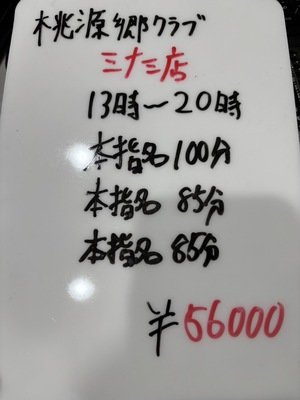 桃源郷クラブ
三十三店
13時〜20時
本指名 100分
本指名 85分
本指名 85分
¥56000